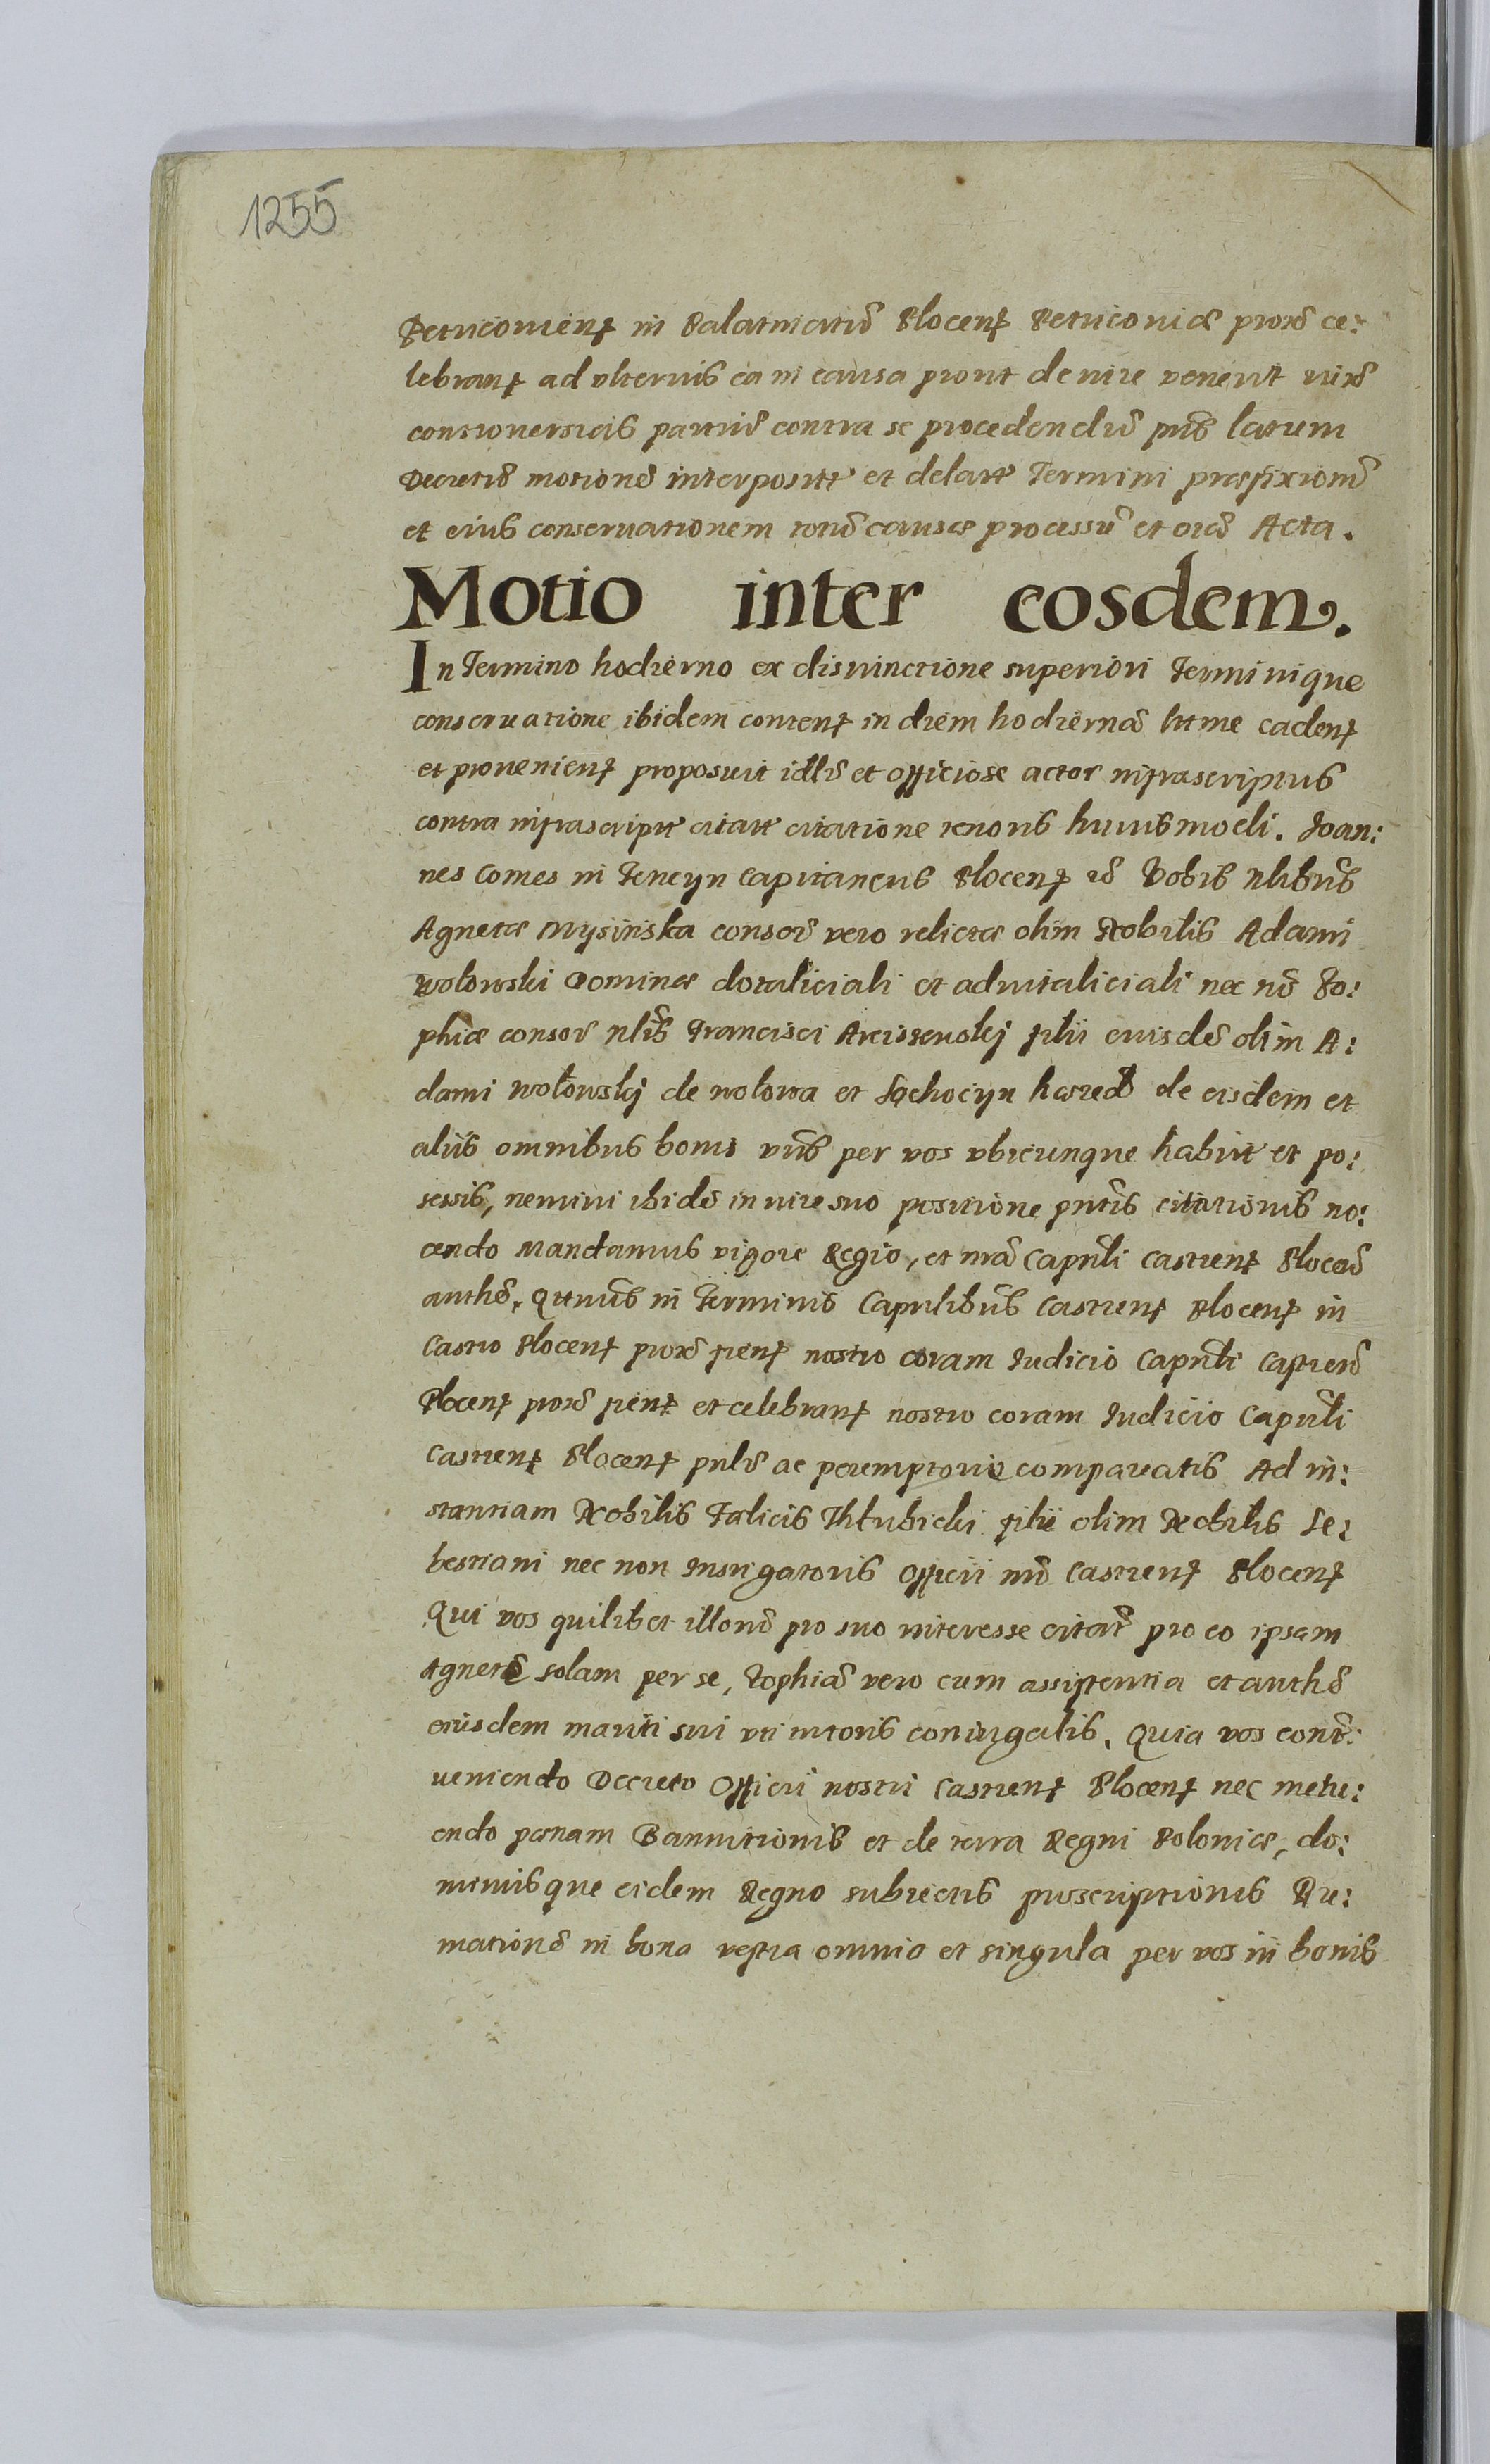 1255
Petricouien in Palatinatu Plocen Petricouiæ proxe ce:
lebran ad vlterius ea in causa prout de iure venerit iuxe
controuersieis partiu contra se procedendu pns latum
Decretu motione interposit et delatt Termini præfixione
et eius conseruationem totu causæ processu et oia Acta.
Motio inter eosdem.
In Termino hodierno ex distinctione superiori Terminique
conseruatione ibidem conten in diem hodierna huc caden
et prouenien proposuit idlr et officiose actor infrascriptus
contra infrascriptt citatt citatione tenoris huiusmodi. Joan:
nes Comes in Tencyn Capitaneus Plocen Vobis Nlibus
Agnetæ Mysinska consor vero relictæ olim Nobilis Adami
Wolowski Dominæ dotaliciali et aduitaliciali nec no So:
phiæ consor nlis Francisci Arciszeuskj filii eiusde olim A:
dami Wołowskj de wolowa et Sochocyn hæred de eisdem et
aliis omnibus bonis vris per vos vbicunque habitt et po:
sessis, nemini ibide in iure suo positione pntis citationis no:
cendo Mandamus vigore Regio, et nra Capnli Castren Plocen
authe, Qtenus in Terminis Capnlibus Castren Plocen in
Castro Plocen proxe fien nostro coram Iudicio Capnli Castren
Plocen proxe fien et celebran nostro coram Iudicio Capnli
Castren Plocen pnlr ac peremptorie compareatis Ad in:
stantiam Nobilis Fælicis filii olim Nobilis Se:
bestiani nec non Instigatoris Officii nri Castren Plocen
Qui vos quilibet illoru pro suo interesse citat pro eo ipsam
Agneta solam per se, Zophia vero cum assistentia et authe
eiusdem mariti sui vti tutoris coniugalis. Quia vos cont:
ueniendo Decreto Officii nostri Castren Plocen nec metu:
endo pœnam Bannitionis et de terra Regni Poloniæ, do:
miniisque eidem Regno subiectis proscriptionis
matione in bona vestra omnia et singula per vos in bonis